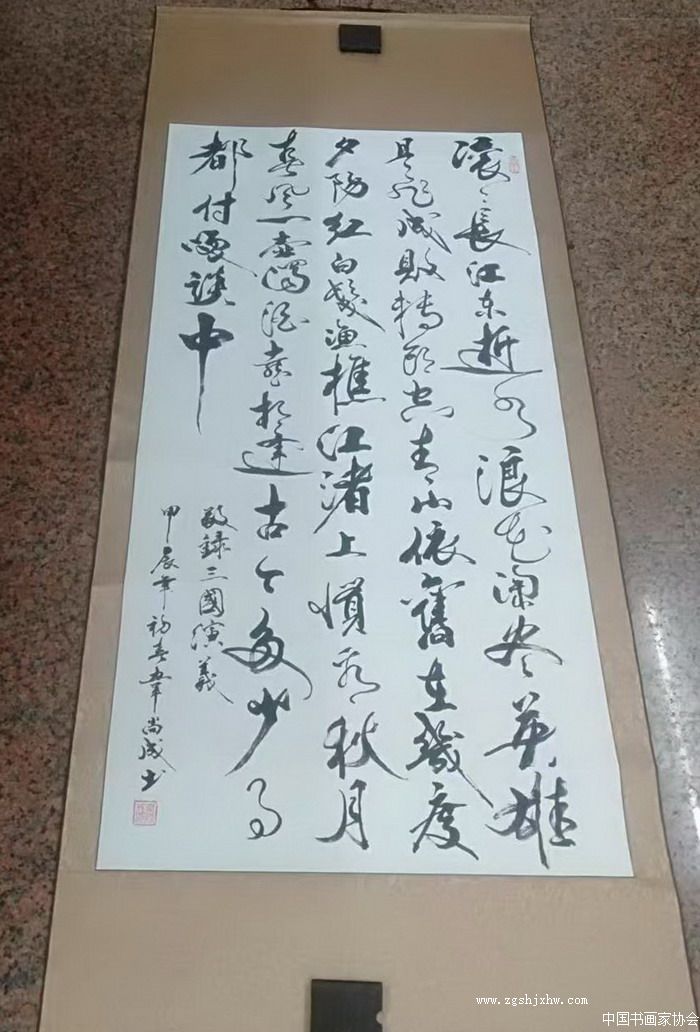 滚滚長江东逝水浪花淘尽英雄
是非成敗转头空青山依舊在幾度
夕阳红白髮渔樵江渚上惯看秋月
春风一壶浊酒喜相逢古今多少事
都付笑談中
敬録三國演義
甲辰年初春尚成书
www.zgshjxhw.com
中国书画家协会